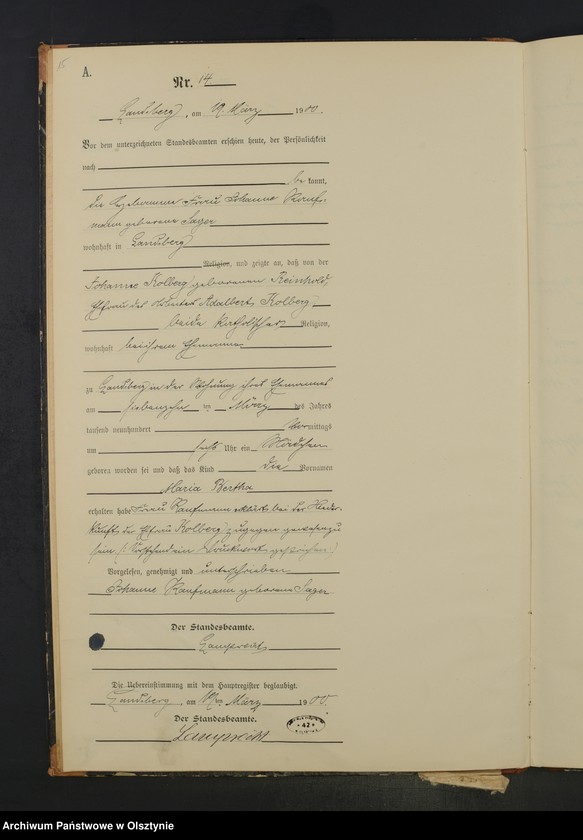 A.
Nr. 14
Landsberg, am 19. März 1900.
Vor dem unterzeichneten Standesbeamten erschien heute, der Persönlichkeit
nach
be kannt,
die Hebamme Frau Johanne Kauf-
mann geborene Sager
wohnhaft in Landsberg
Religion, und zeigte an, daß von der
Johanne Kolberg geborenen Reinhold,
Ehefrau des Adalbert Kolberg
beide katholischer Religion,
wohnhaft bei ihrem Ehemanne
zu Landsberg in der Wohnung ihres Ehemannes
am siebenzehn ten März des Jahres
tausend neunhundert Vormittags
um sechs Uhr ein Mädchen
geboren worden sei und daß das Kind die Vornamen
Maria Bertha
erhalten habe. Frau Kaufmann erklärte, bei der Nieder-
kunft der Ehefrau Kolberg zugegen gewesen zu
sein. (: Vorstehend ein Druckwort gestrichen.)
Vorgelesen, genehmigt und unterschrieben
Johanne Kaufmann geborene Sager
Der Standesbeamte.
Lamprecht
Die Uebereinstimmung mit dem Hauptregister beglaubigt.
Landsberg, am 19. März 1900.
Der Standesbeamte.
Lamprecht
42
Archiwum Państwowe w Olsztynie